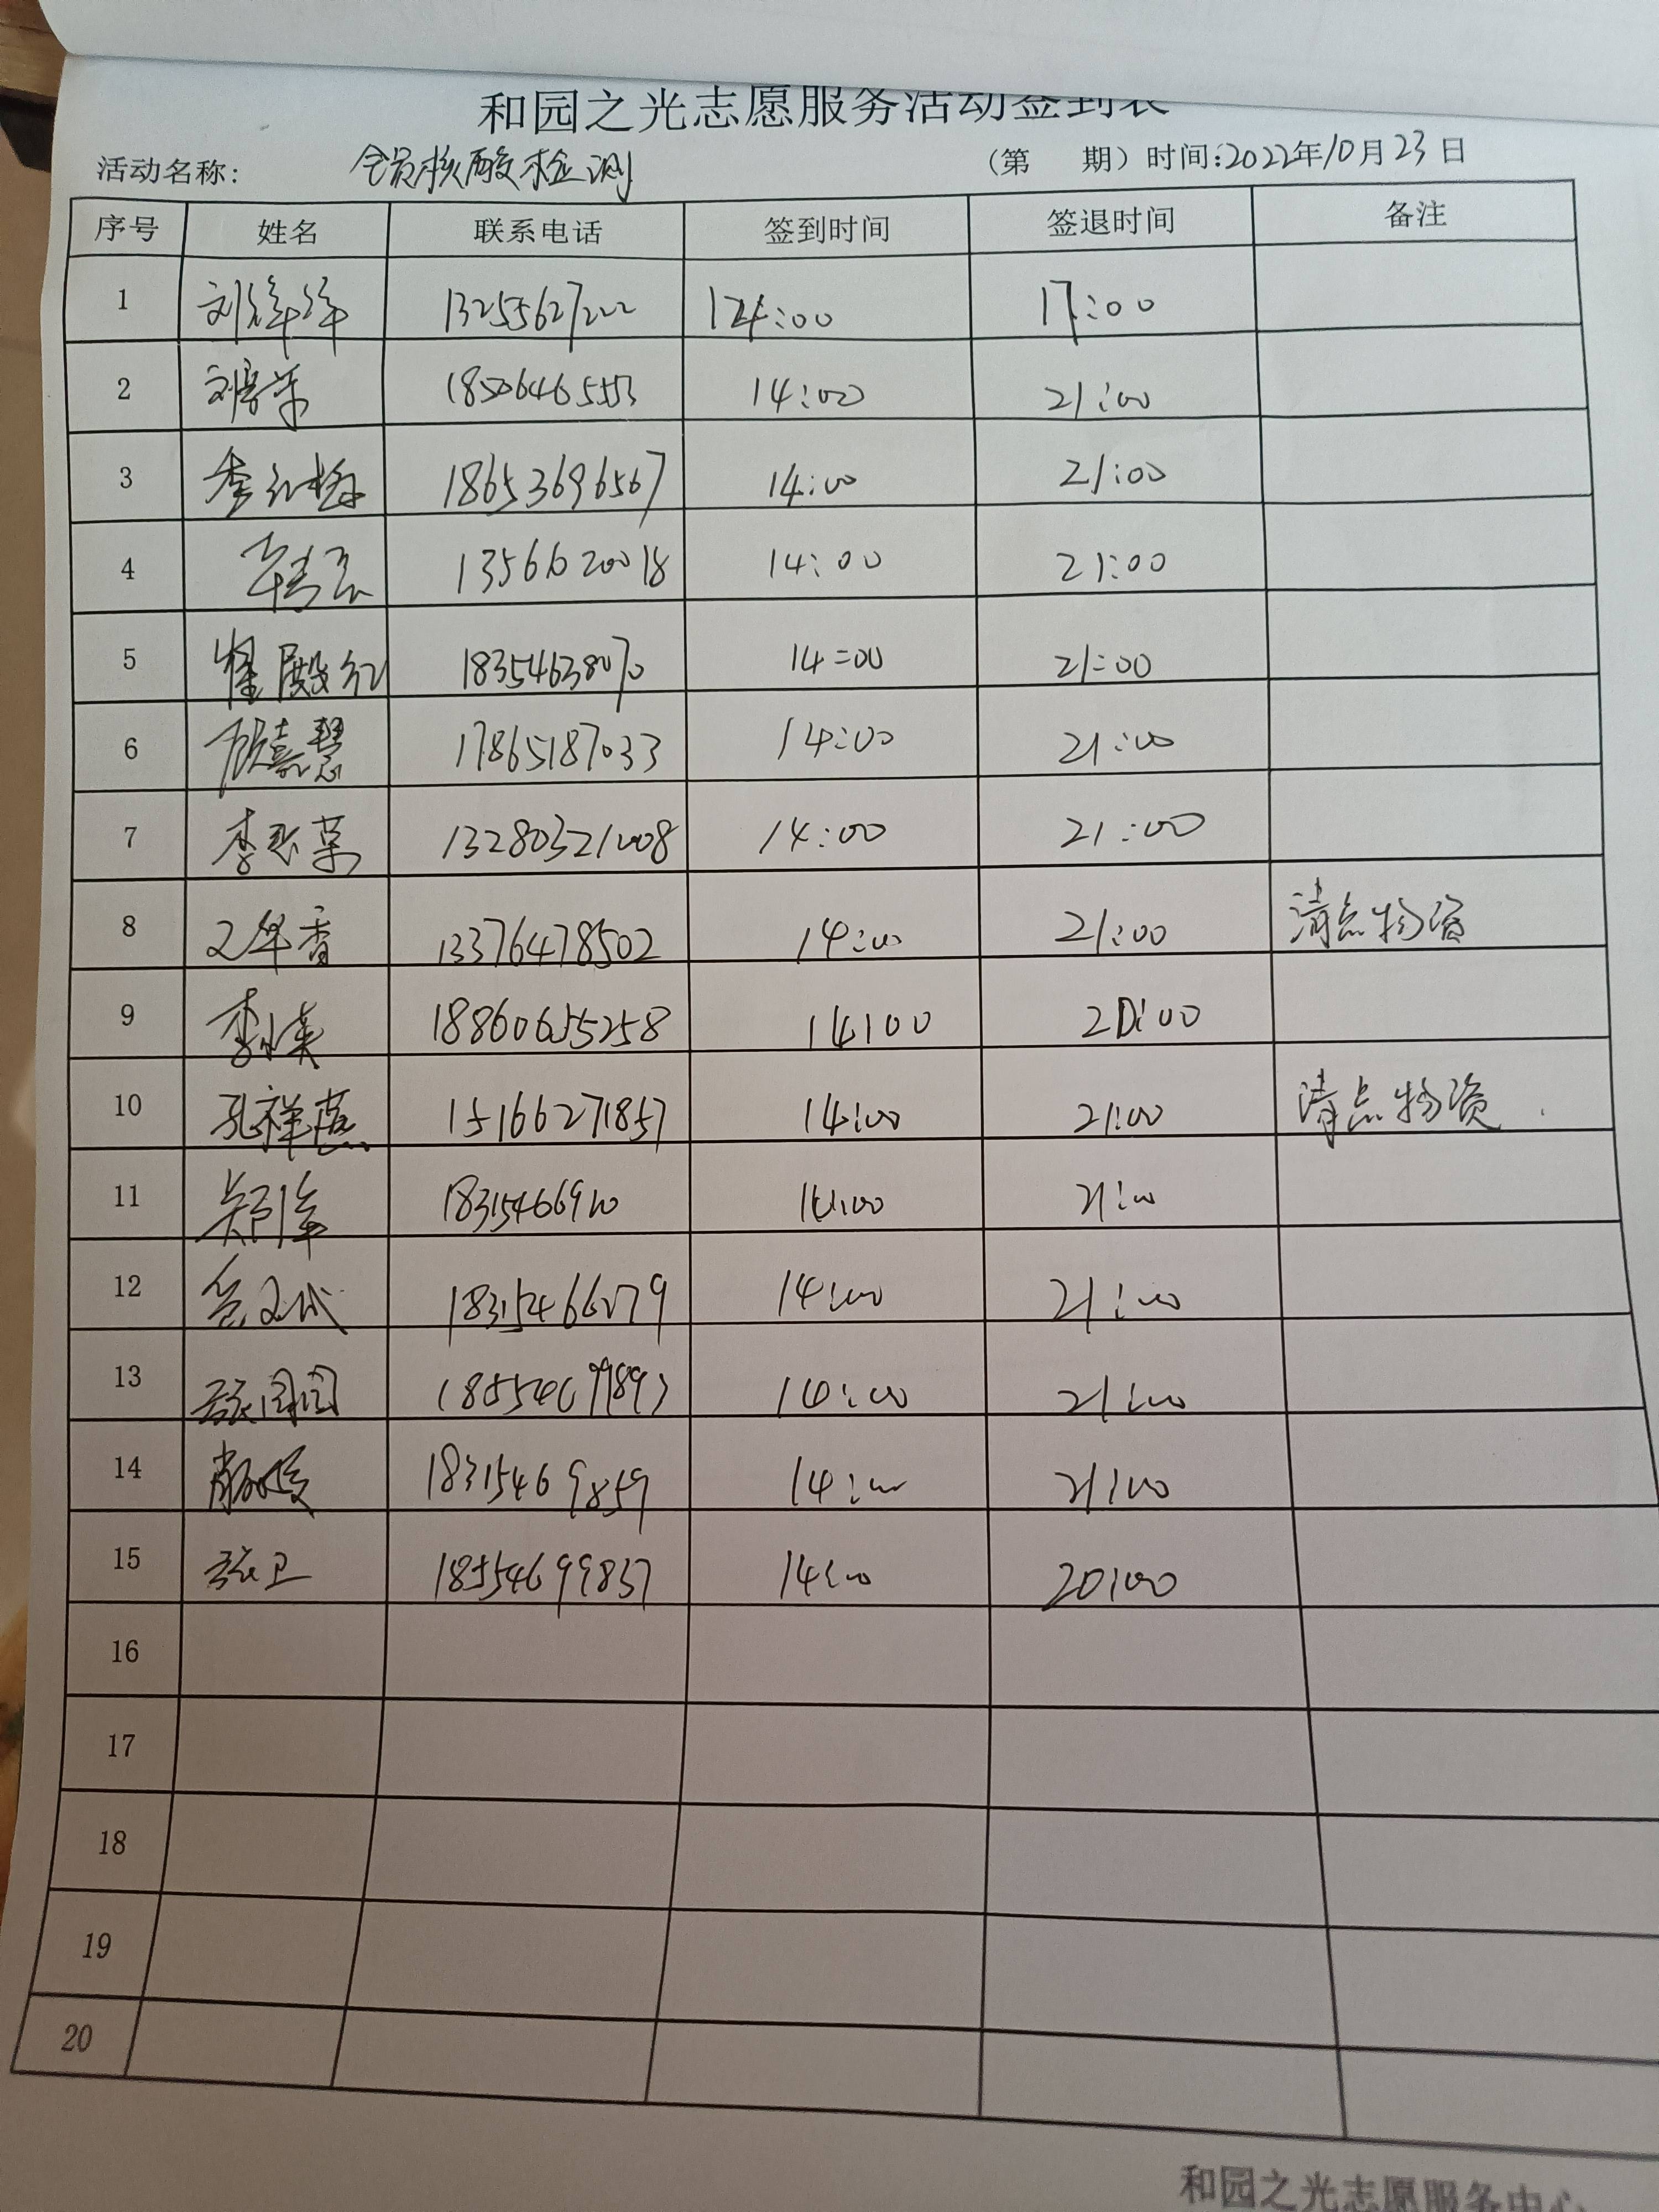 和园之光志愿服务活动签到表
活动名称: 全员核酸检测 (第 期) 时间:2022年10月23日
序号 姓名 联系电话 签到时间 签退时间 备注
1 13255627222 14:00 17:00
2 14:00 21:00
3 李红梅 18653696567 14:00 21:00
4 14:00 21:00
5 崔殿红 18354638070 14:00 21:00
6 顾嘉慧 17865187033 14:00 21:00
7 李 13280321008 14:00 21:00
8 13376478502 14:00 21:00 清点物资
9 李 18860655258 14:00 20:00
10 孔祥燕 15166271857 14:00 21:00 清点物资
11 郑军 18315466910 14:00 21:00
12 14:00 21:00
13 张闰闰 14:00 21:00
14 18315469859 14:00 21:00
15 张卫 18554699837 14:00 20:00
16
17
18
19
20
和园之光志愿服务中心